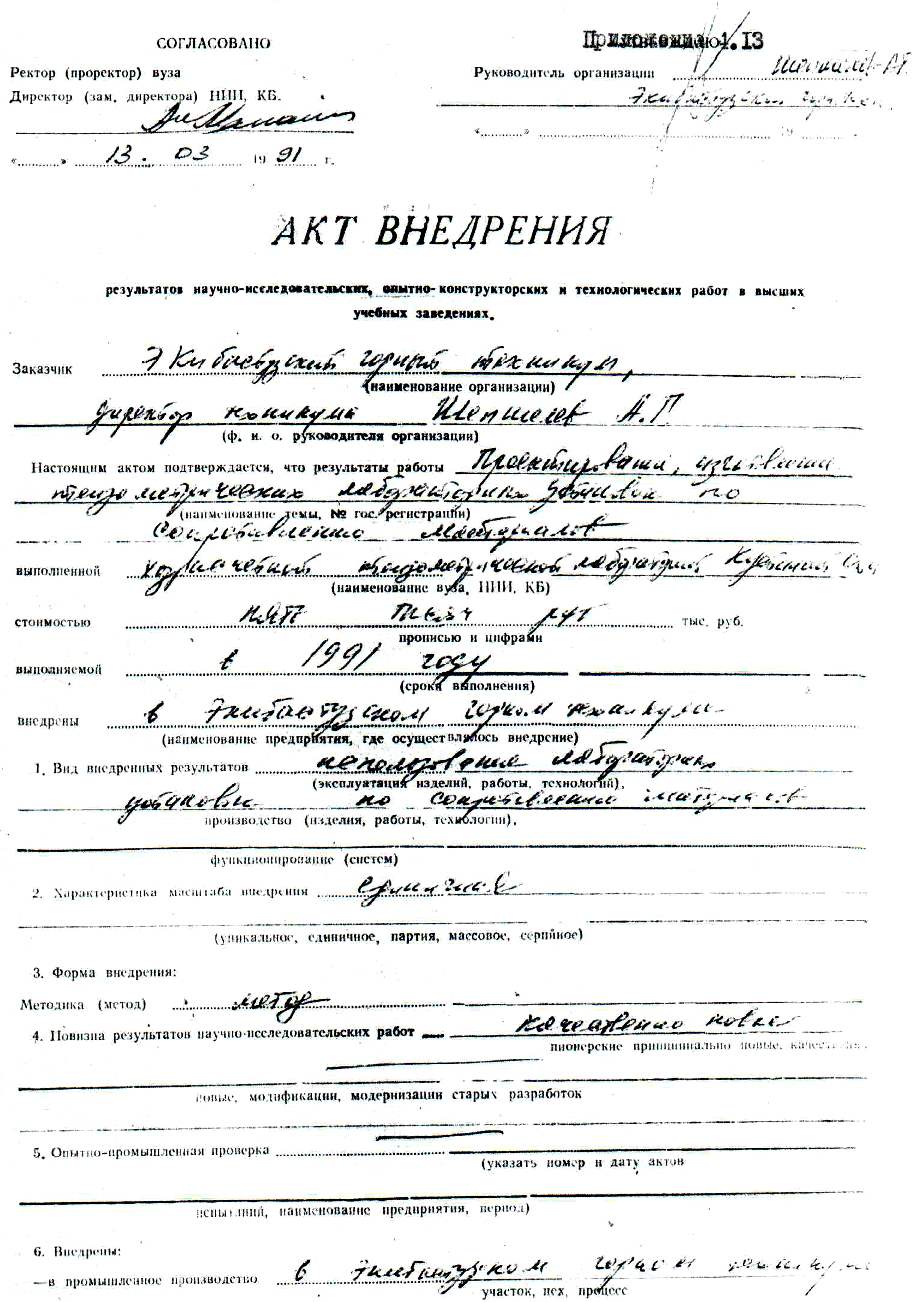 СОГЛАСОВАНО
Приложение 1.13
Ректор (проректор) вуза
Руководитель организации
Директор (зам. директора) НИИ, КБ.
« » 13. 03 1991 г.
« » 19
АКТ ВНЕДРЕНИЯ
результатов научно-исследовательских, опытно-конструкторских и технологических работ в высших
учебных заведениях.
Заказчик Экибастузский горный техникум,
(наименование организации)
директор техникума Шепшелев А.П
(ф. и. о. руководителя организации)
Настоящим актом подтверждается, что результаты работы Проектирование,
тензометрических лабораторных установок по
(наименование темы, № гос. регистрации)
Сопротивлению материалов
выполненной хозрасчетной тензометрической лабораторией
(наименование вуза, НИИ, КБ)
стоимостью пять тысяч руб тыс. руб.
прописью и цифрами
выполняемой в 1991 году
(сроки выполнения)
внедрены в Экибастузском горном техникуме
(наименование предприятия, где осуществлялось внедрение)
1. Вид внедренных результатов использование лабораторных
(эксплуатация изделий, работы, технологий),
установок по сопротивлению материалов
производство (изделия, работы, технологии),
функционирование (систем)
2. Характеристика масштаба внедрения единичная
(уникальное, единичное, партия, массовое, серийное)
3. Форма внедрения:
Методика (метод) метод
4. Новизна результатов научно-исследовательских работ качественно новые
пионерские принципиально новые, качественно
новые, модификации, модернизации старых разработок
5. Опытно-промышленная проверка
(указать номер и дату актов
испытаний, наименование предприятия, период)
6. Внедрены:
—в промышленное производство в Экибастузском горном техникуме
участок, цех, процесс